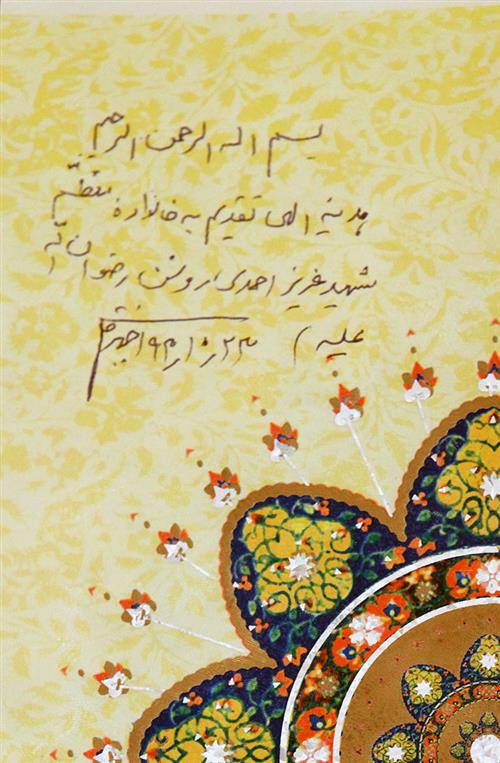 بسم الله الرحمن الرحیم
هدیه الهی تقدیم به خانواده معظم
شهید عزیز احمدی روشن رضوان الله
علیه ) ۹۴٫۱۰٫۲۳